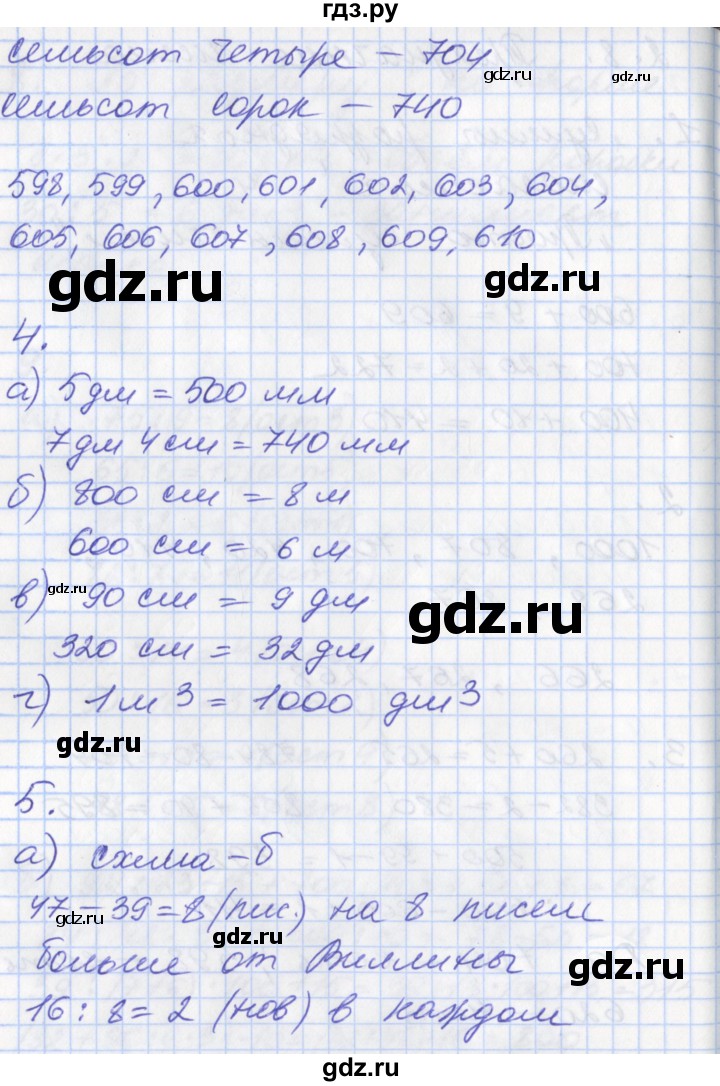 гдз.ру
семьсот четыре – 704
gdz.ru
семьсот сорок – 740
598, 599, 600, 601, 602, 603, 604,
605, 606, 607, 608, 609, 610
gdz.ru
gdz.ru
4.
а) 5 дм = 500 мм
7 дм 4 см = 740 мм
б) 800 см = 8 м
600 см = 6 м
gdz.ru
в) 90 см = 9 дм
gdz.ru
320 см = 32 дм
г) 1 м 3 = 1000 дм 3
gdz.ru
5.
а) схема – б
47 – 39 = 8 (пис.) на 8 писем
gdz.ru
gdz.ru
больше от Виллины
gdz.ru
16 : 8 = 2 (нов) в каждом
gdz.ru